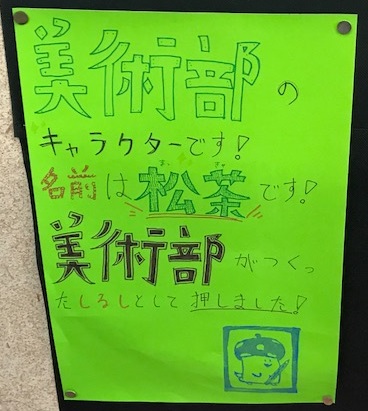 美術部の
キャラクターです!
名前は松茶です!
美術部がつくっ
たしるしとして押しました!